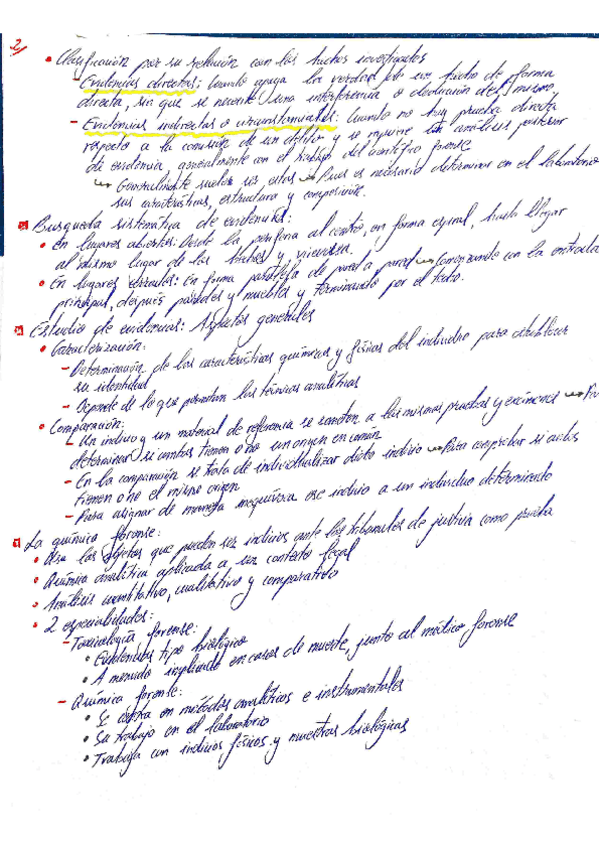 2/
• Clasificación por su relación con los hechos investigados
- Evidencias directas: Cuando apoya la verdad de un hecho de forma
directa, sin que se necesite una interferencia o deducción del mismo.
- Evidencias indirectas o circunstanciales: Cuando no hay prueba directa
respecto a la comisión de un delito y se requiere un análisis posterior
de evidencia, generalmente con el trabajo del científico forense
Generalmente suelen ser estas → Pues es necesario determinar en el laboratorio
sus características, estructura y composición.
Busqueda sistemática de evidencias:
• En lugares abiertos: Desde la periferia al centro, en forma espiral, hasta llegar
al mismo lugar de los hechos y, viceversa.
• En lugares cerrados: En forma paralela de pared a pared → Comenzando con la entrada
principal, después paredes y muebles y terminando por el techo.
Estudio de evidencias: Aspectos generales
• Caracterización:
- Determinación de las características químicas y físicas del individuo para establecer
su identidad
- Depende de lo que permitan las técnicas analíticas
• Comparación:
- Un indicio y un material de referencia se someten a las mismas pruebas y exámenes → Para
determinar si ambos tienen o no un origen en común
- En la comparación se trata de individualizar dicho indicio → Para comprobar si ambos
tienen o no el mismo origen
- Para asignar de manera inequívoca ese indicio a un individuo determinado
La química forense:
• Usa los objetos que pueden ser indicios ante los tribunales de justicia como prueba
• Química analítica aplicada a un contexto legal
• Análisis cuantitativo, cualitativo y comparativo
• 2 especialidades:
- Toxicología forense:
• Evidencias tipo biológico
• A menudo implicado en casos de muerte, junto al médico forense
- Química forense:
• Se centra en métodos analíticos e instrumentales
• Su trabajo en el laboratorio
• Trabaja con indicios físicos y muestras biológicas